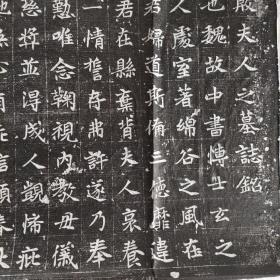 殷夫人之墓誌銘
也魏故中書博士玄之
人處室著綿谷之風在
若婦道斯備三德靡違
君在縣棄背夫人哀養
一情誓存弗許遂乃奉
懃唯念鞠視內教毋儀
慈將並得成人覬怖疵